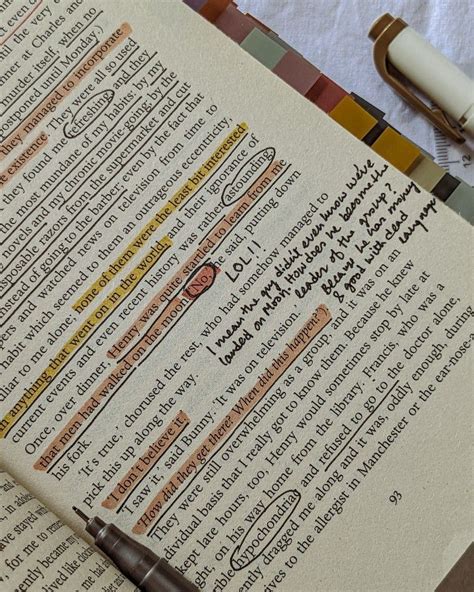 till the very e
inner at Charles and
murder itself, when no
postponed until Monday
they managed to incorporate
existence. They were all so used
they found me refreshing and they
the most mundane of my habits: by my
novels and my chronic movie-going; by the
disposable razors from the supermarket and cut
instead of going to the barber; even by the fact that
pers and watched news on television from time to
habit which seemed to them an outrageous eccentricity,
that to me alone; none of them were the least bit interested
in anything that went on in the world, and their ignorance of
current events and even recent history was rather astounding.
Once, over dinner, Henry was quite startled to learn from me
that men had walked on the moon. 'No,' he said, putting down
his fork.
'It's true,' chorused the rest, who had somehow managed to
pick this up along the way.
'I don't believe it.'
'I saw it,' said Bunny. 'It was on television.'
'How did they get there? When did this happen?'
They were still overwhelming as a group, and it was on an
individual basis that I really got to know them. Because he knew
kept late hours, too, Henry would sometimes stop by late at
night, on his way home from the library. Francis, who was a
rible hypochondriac and refused to go to the doctor alone,
ently dragged me along and it was, oddly enough, during
rives to the allergist in Manchester or the ear-nose-
93
LOL!!
I mean the guy didn't even know we've
landed on Moon. How does he become the
leader of the group?
Because he has money
& good with dead
languages